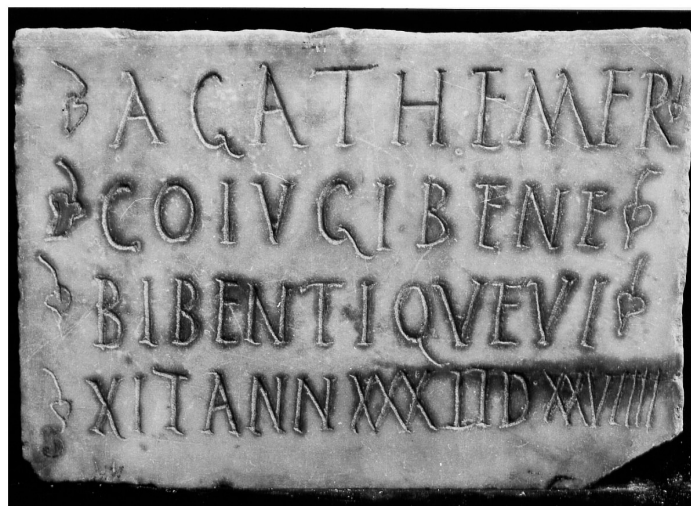 AGATHEMER
COIVGIBENE
BIBENTIQVEVI
XITANNXXXIIDXXVIIII